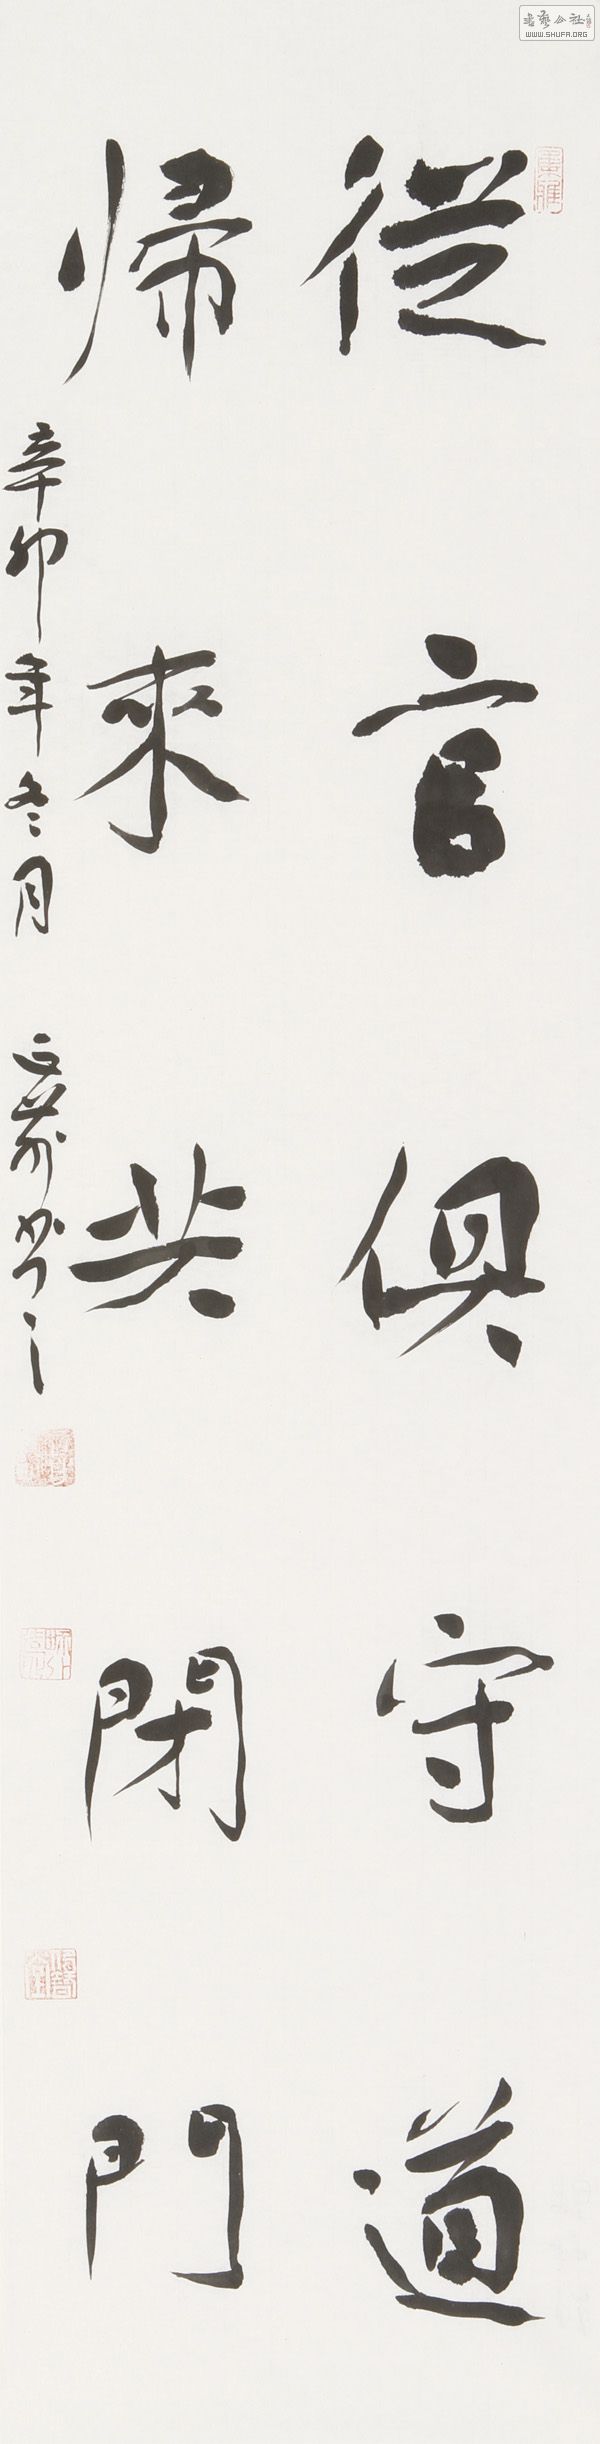 書藝公社
WWW.SHUFA.ORG
從官俱守道
歸來共閉門
辛卯年冬月